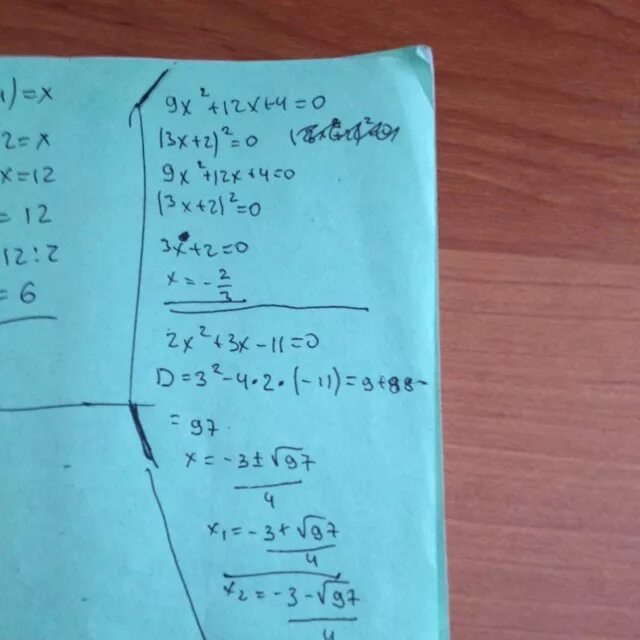 1)=x
2=x
x=12
=12
12:2
=6
9x²+12x+4=0
(3x+2)²=0
9x²+12x+4=0
(3x+2)²=0
3x+2=0
x=-2/3
2x²+3x-11=0
D=3²-4•2•(-11)=9+88-
=97
x=-3±√97/4
x₁=-3+√97/4
x₂=-3-√97/4